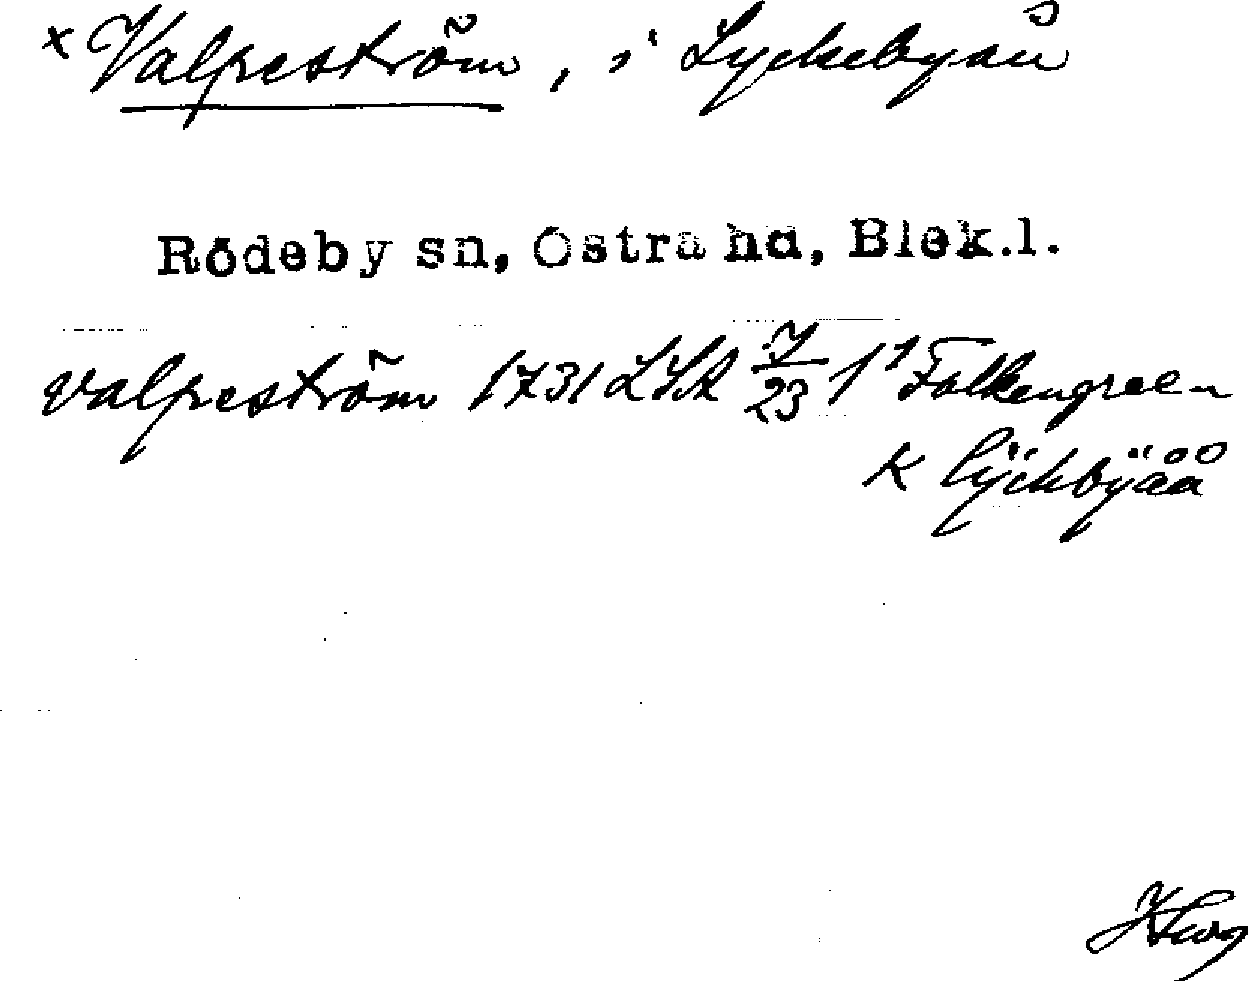 x Valpeström, i Lyckebyån
Rödeby sn, Östra hd, Blek.l.
valpeström 1731 LSA 7/23 1:1 Falkengreen
K lÿckbÿåå